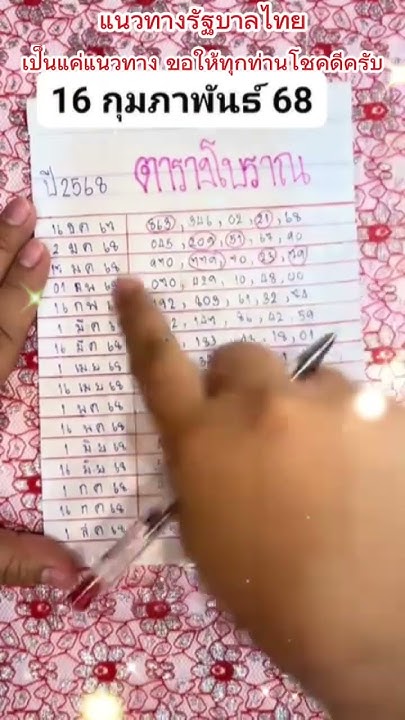 แนวทางรัฐบาลไทย
เป็นแค่แนวทาง ขอให้ทุกท่านโชคดีครับ
16 กุมภาพันธ์ 68
ปี2568 ตารางโบราณ
16 ธค 67 863, 346, 02, 21, 68
2 มค 68 045, 209, 51, 67, 90
17 มค 68 970, 779, 70, 23, 79
01 กพ 68 070, 429, 10, 48, 00
16 กพ 192, 403, 61, 32, 54
1 มีค 149, 86, 42, 59
16 มีค 183, 18, 01
1 เมษ 68
16 เมษ 68
1 พค 68
16 พค 68
1 มิย 68
16 มิย 68
1 กค 68
16 กค 68
1 สค 68